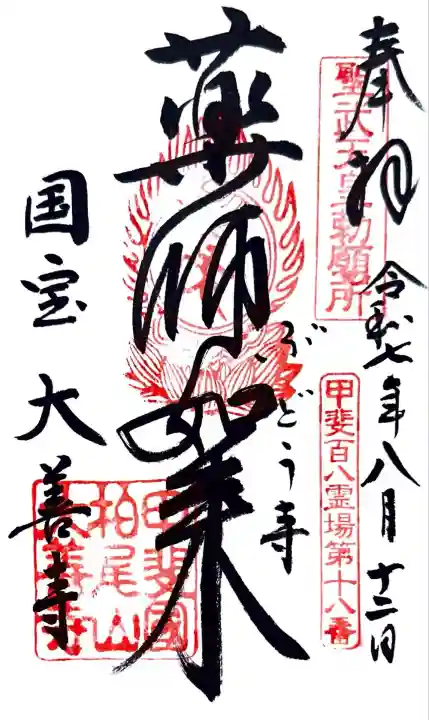 奉拝
聖武天皇勅願所
令和七年八月十二日
甲斐百八霊場第十八番
薬師如来
ぶどう寺
国宝 大善寺
甲斐國
柏尾山
大善寺